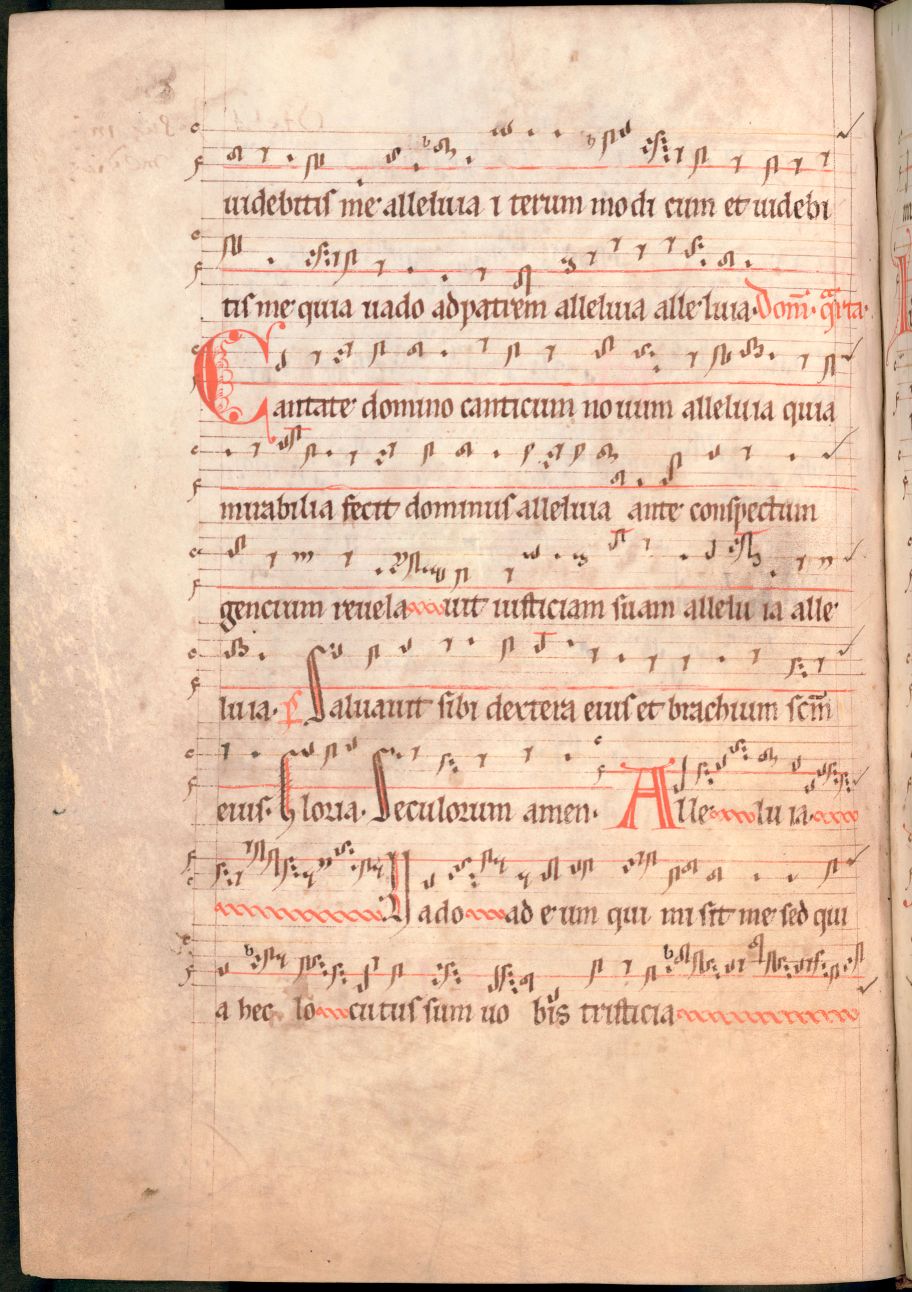 uidebitis me alleluia i terum modi cum et uidebi
tis me quia uado ad patrem alleluia alle luia. Dom̅. qᷓrta.
Cantate domino canticum no uum alleluia quia
mirabilia fecit dominus alleluia ante conspectum
gencium reuela uit iusticiam suam allelu ia alle
luia. P̅ Saluauit sibi dextera eius et brachium scm̅
eius. Gloria. Seculorum amen. Alle lu ia.
Uado ad e um qui mi sit me sed qui
a hec lo cutus sum uo bis tristicia